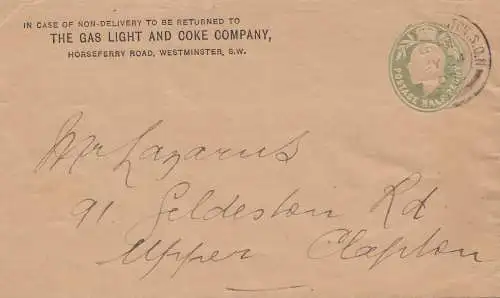 IN CASE OF NON-DELIVERY TO BE RETURNED TO
THE GAS LIGHT AND COKE COMPANY,
HORSEFERRY ROAD, WESTMINSTER, S.W.
POSTAGE HALFPENNY
Mr Lazarus
91. Geldeston Rd
Upper Clapton